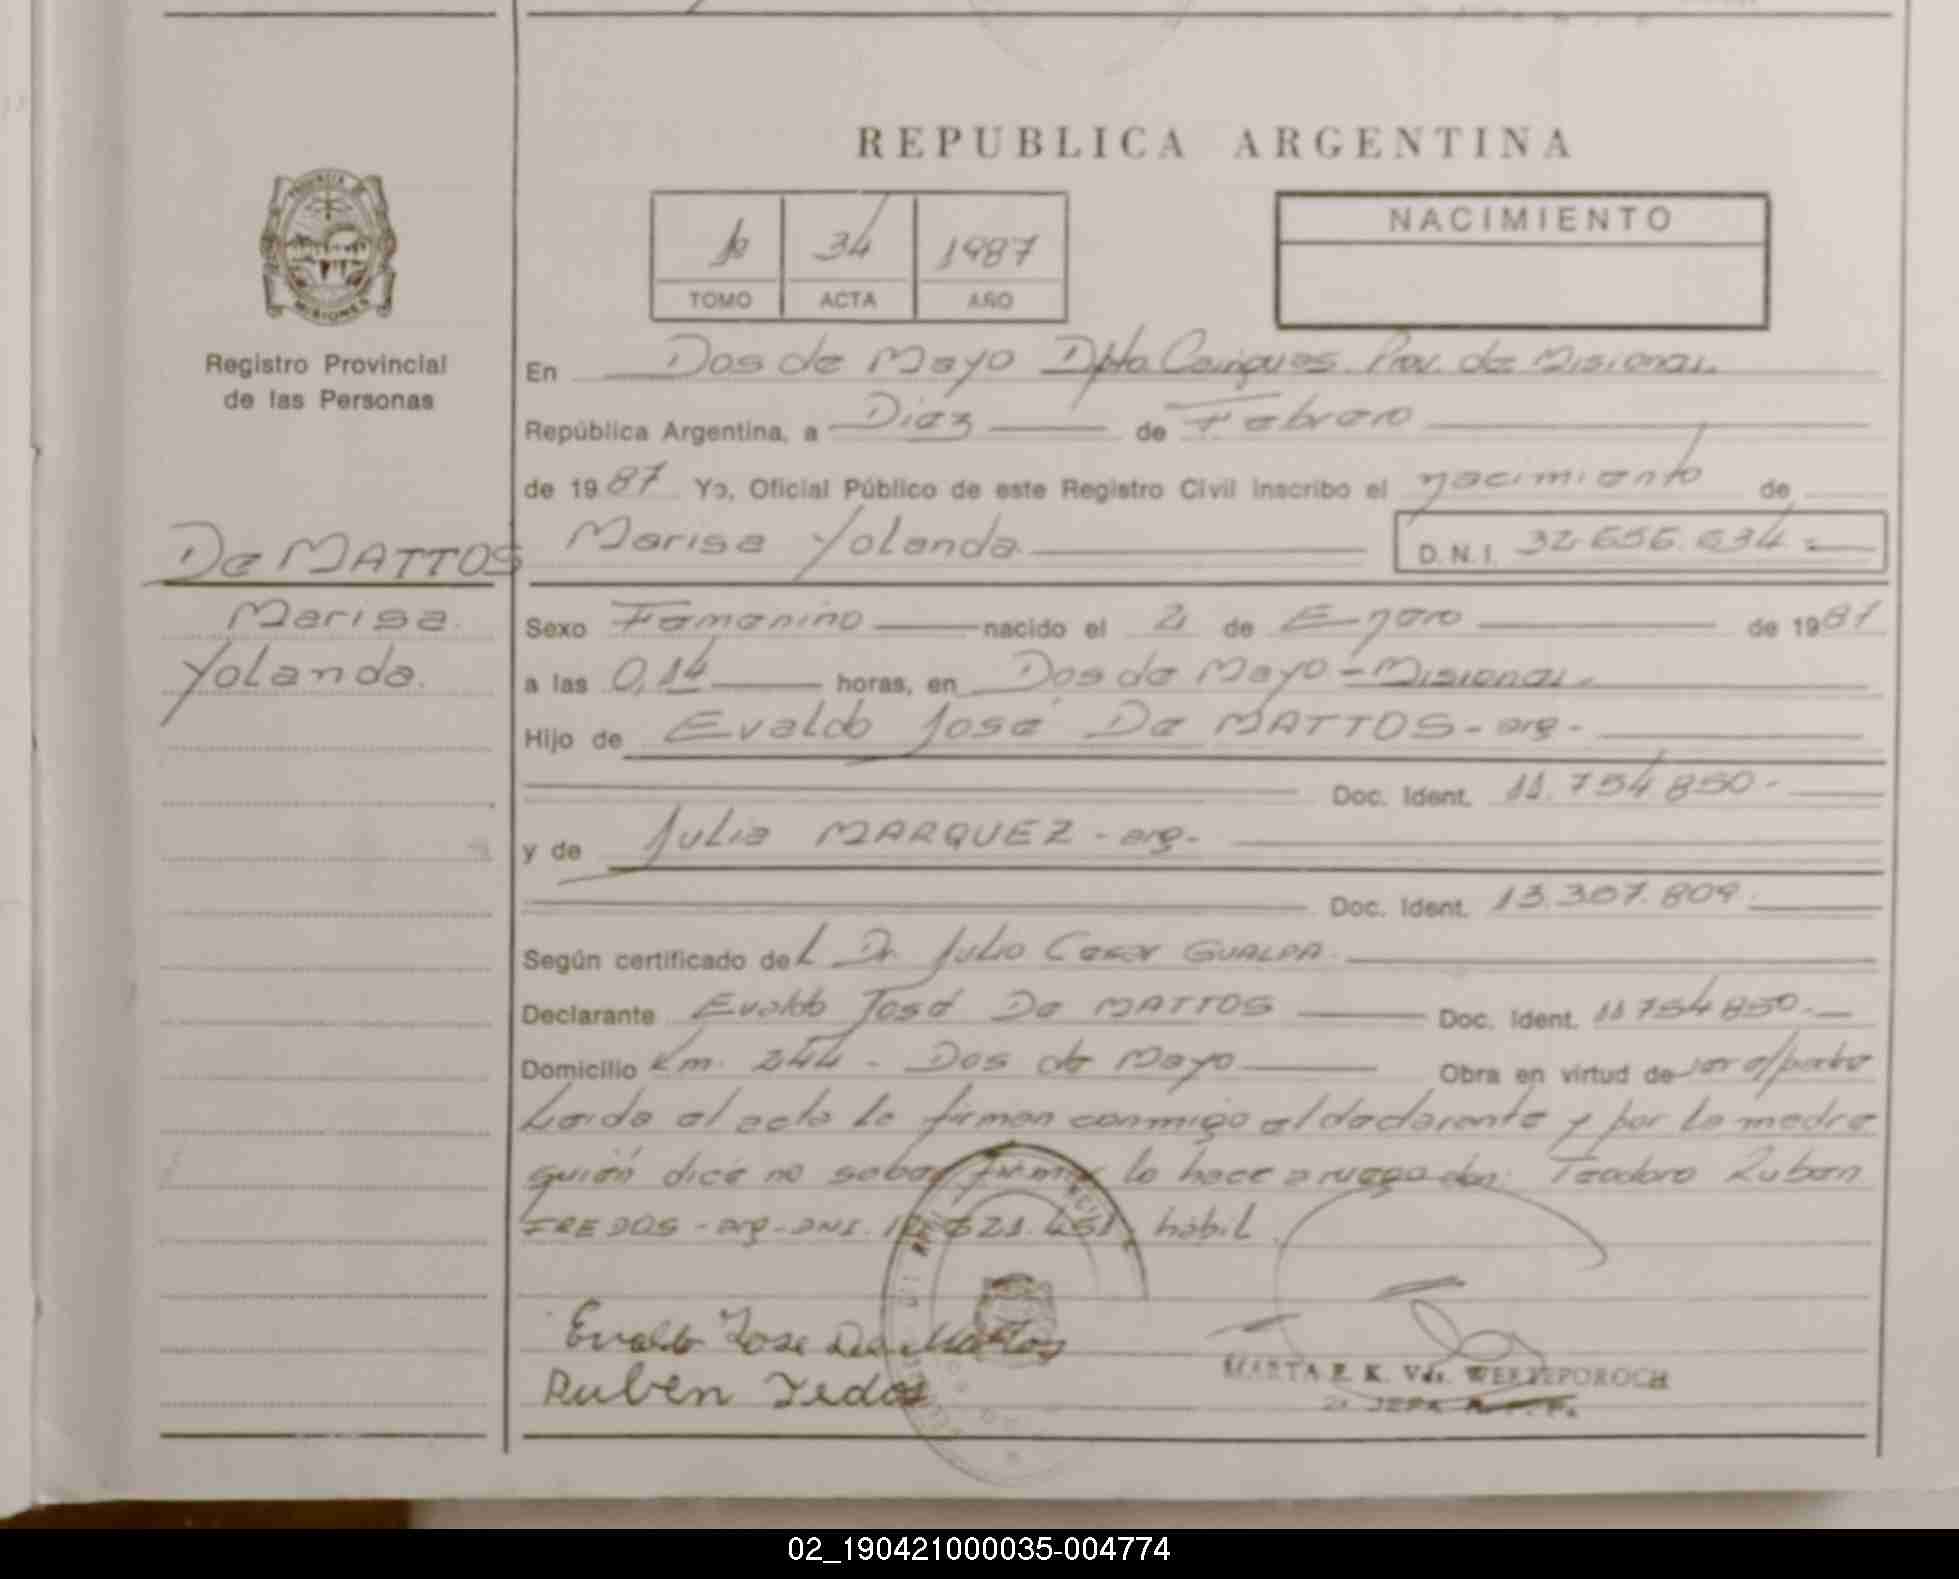 REPUBLICA ARGENTINA
PROVINCIA DE
MISIONES
Registro Provincial
de las Personas
1º 34 1987
TOMO ACTA AÑO
NACIMIENTO
En Dos de Mayo Dpto. Cainguas. Prov. de Misiones.
República Argentina, a Diez de Febrero
de 1987 Yo, Oficial Público de este Registro Civil inscribo el nacimiento de
De MATTOS
Marisa Yolanda.
Marisa Yolanda D.N.I. 32.656.634.=
Sexo Femenino nacido el 2 de Enero de 1987
a las 0,14 horas, en Dos de Mayo - Misiones.
Hijo de Evaldo José De MATTOS - arg -
Doc. Ident. 11.754.850 -
y de Julia MARQUEZ - arg -
Doc. Ident. 13.307.809.
Según certificado del Dr. Julio Cesar GUALPA.
Declarante Evaldo José De MATTOS Doc. Ident. 11754850.
Domicilio Km. 244 - Dos de Mayo Obra en virtud de
Leida el acta la firman conmigo el declarante y por la madre
quién dice no saber firmar lo hace a ruego don: Teodoro Ruben
arg - DNI. hábil.
Evaldo Jose De Mattos
Ruben
MARTA E. K. Vda.
JEFA
02_190421000035-004774